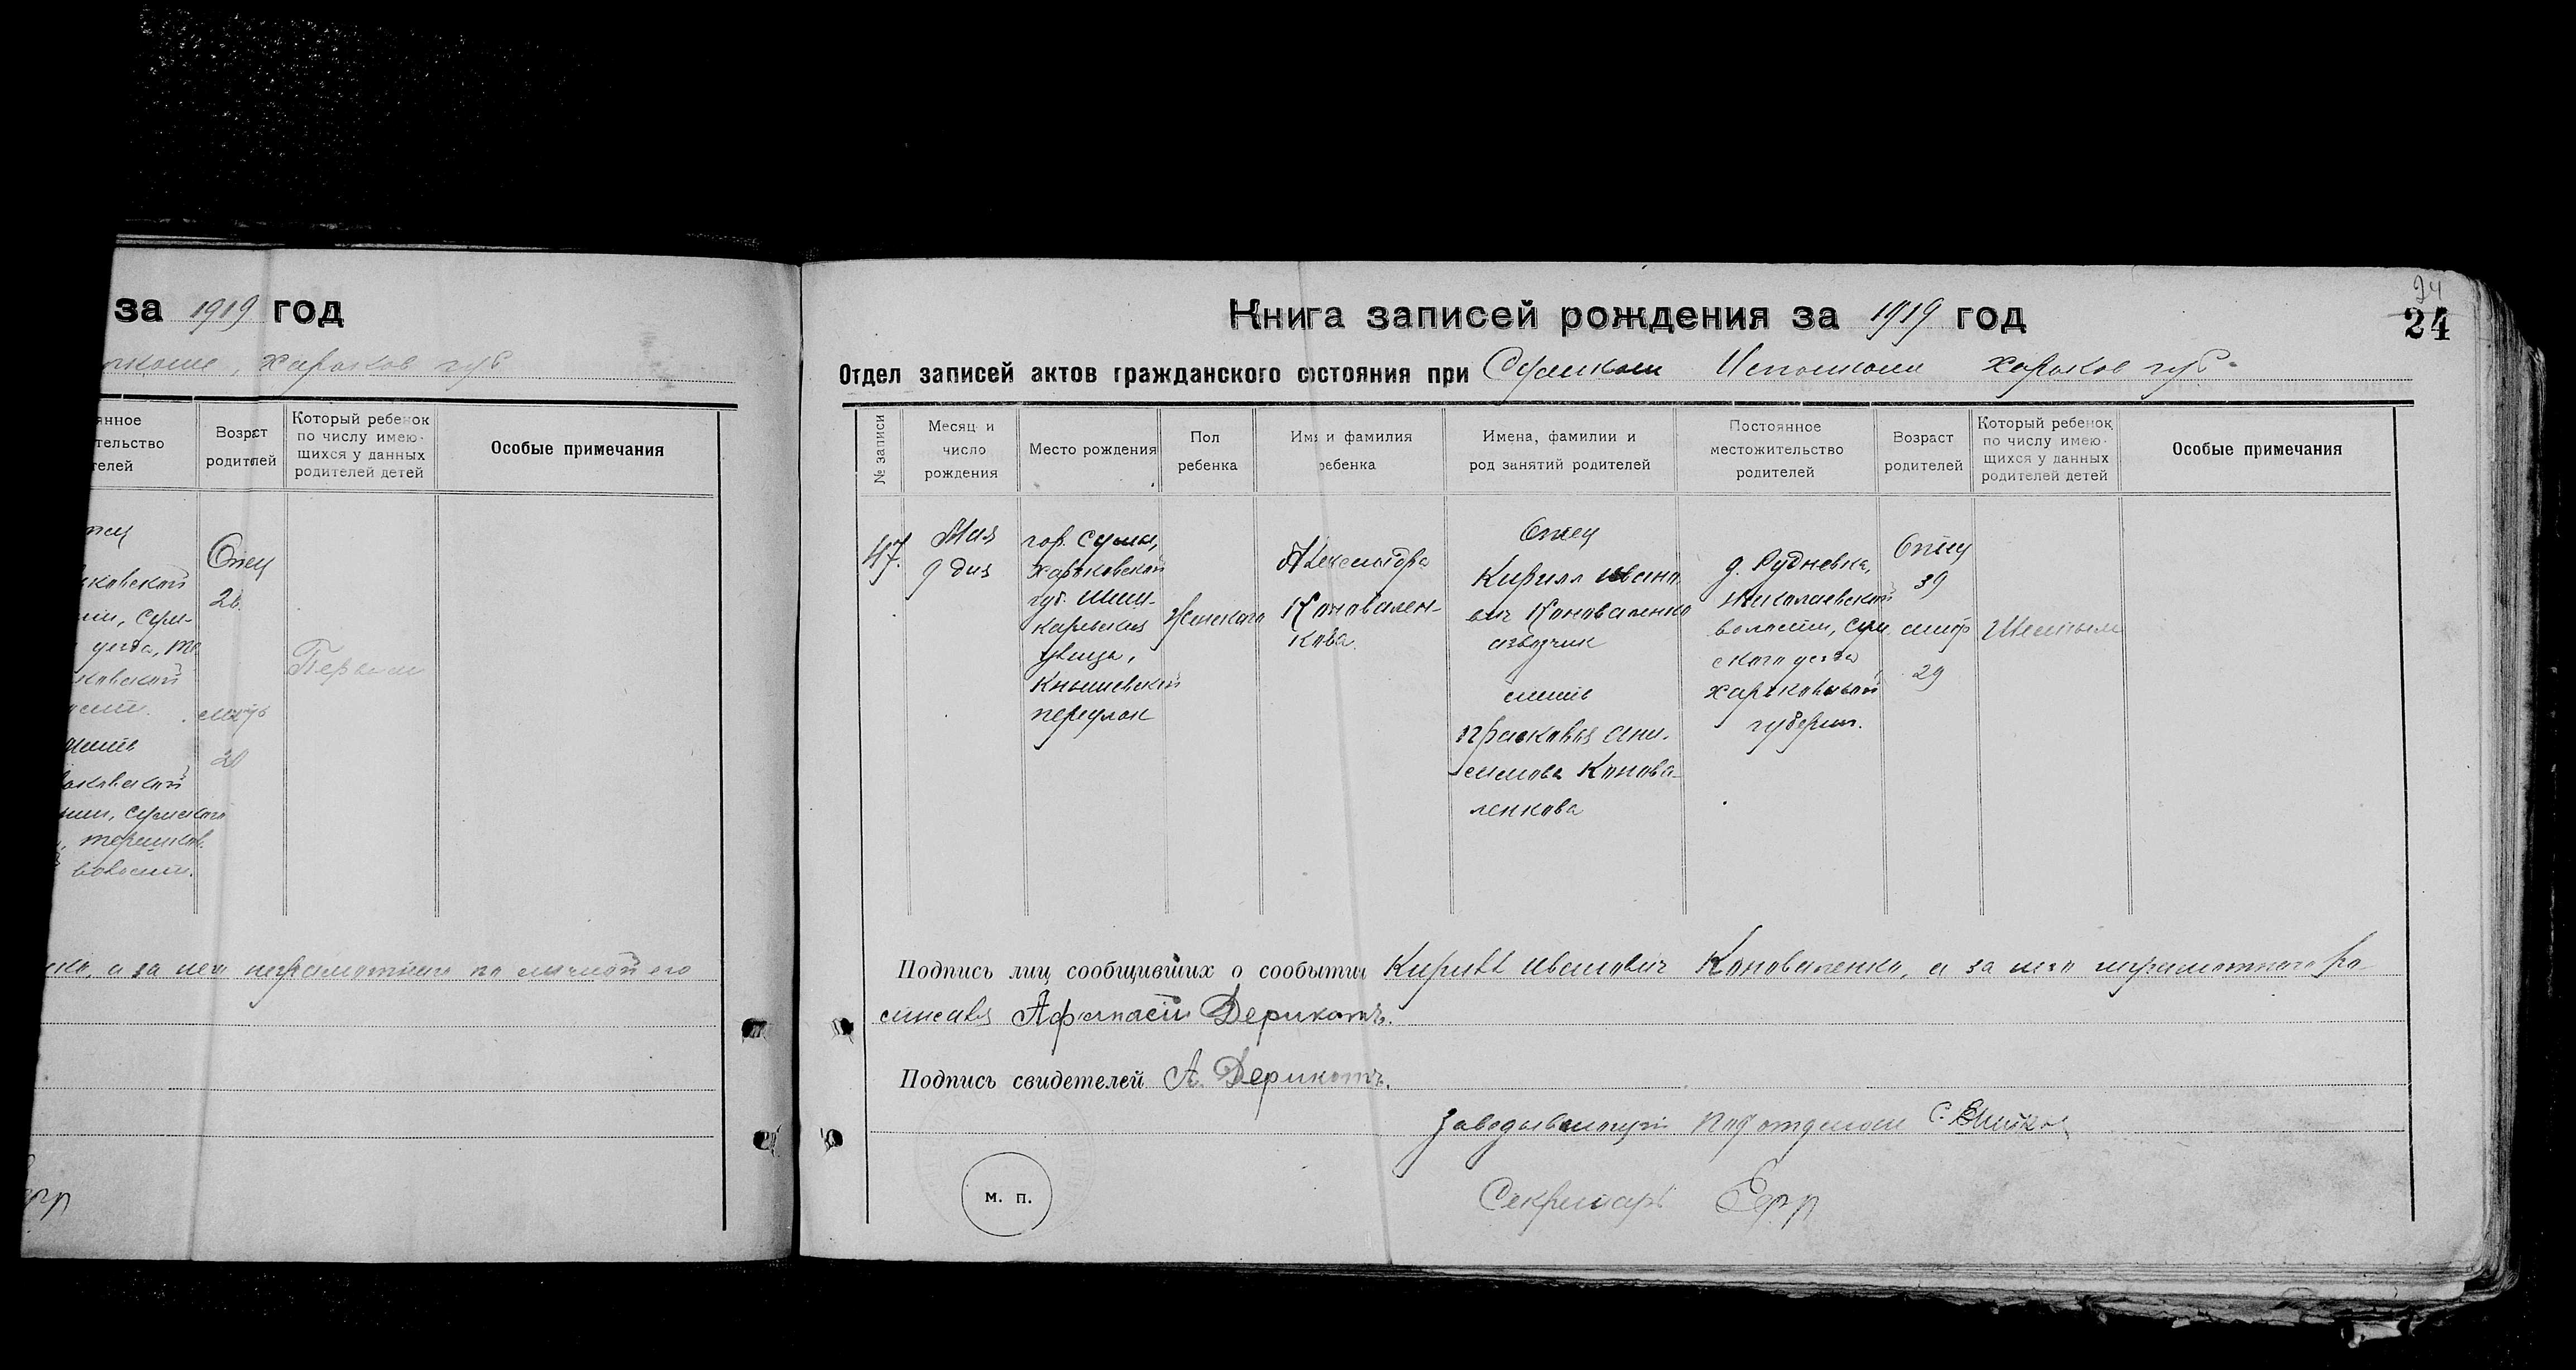 за 1919 год
Харьков губ
янное
тельство
телей
Возраст
родителей
Который ребенок
по числу имею-
щихся у данных
родителей детей
Особые примечания
Отец
26.
Первым
мать
уезда,
волости.
а за него неграмотного по личной его
24
24
Книга записей рождения за 1919 год
Отдел записей актов гражданского состояния при Сумском Исполкоме Харьков губ.
№ записи
Месяц и
число
рождения
Место рождения
Пол
ребенка
Имя и фамилия
ребенка
Имена, фамилии и
род занятий родителей
Постоянное
местожительство
родителей
Возраст
родителей
Который ребенок
по числу имею-
щихся у данных
родителей детей
Особые примечания
47.
Мая
9 дня
гор. Сумы,
Харьковской
губ.
улица,
переулок
Женского
Александра
Коновален-
кова.
Отец
Кирилл Ивано
вич Коноваленко
извозчик
мать
Прасковья Ани-
симова Конова-
ленкова
д. Рудневка,
Николаевской
волости, Сум
ского уезда
Харьковской
губернии.
Отец
39
мать
29
Шестым
Подпись лиц сообщивших о сообытии Кирилл Иванович Коноваленко, а за него неграмотного ра-
списался Афанасий Дерикотъ.
Подпись свидетелей А. Дерикотъ.
Заведывающий подотделом С.
Секретарь
м. п.